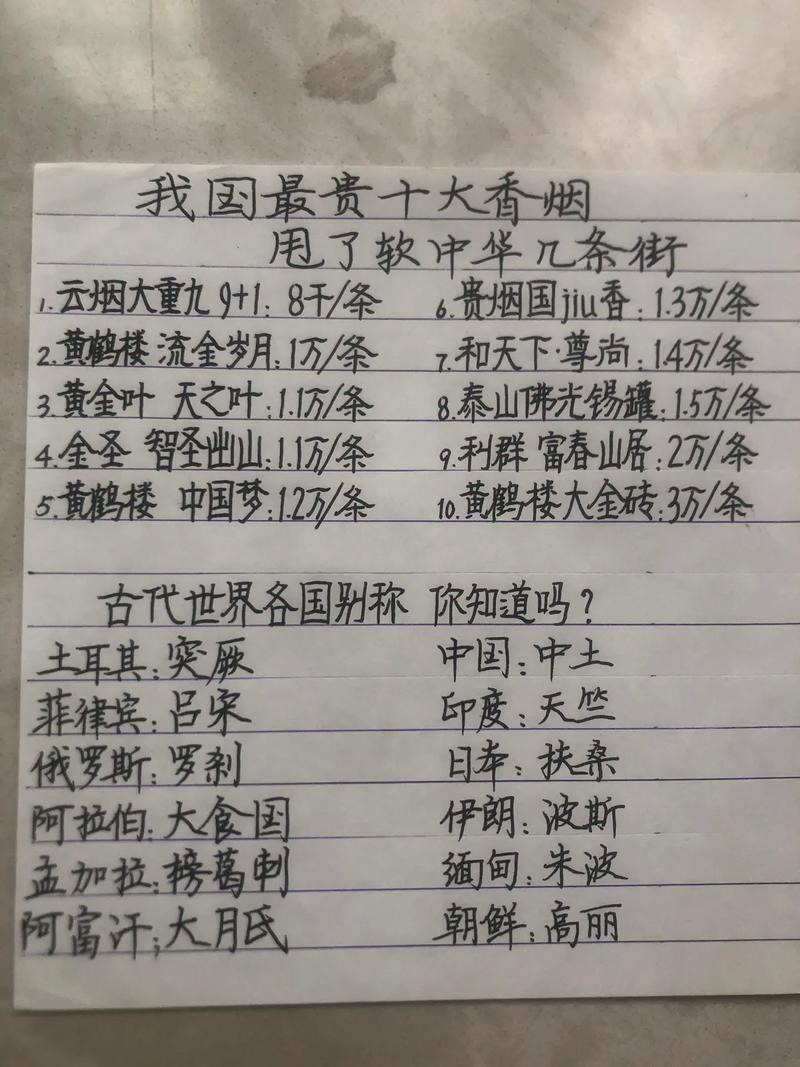 我国最贵十大香烟
甩了软中华几条街
1.云烟大重九9+1:8千/条 6.贵烟国jiu香:1.3万/条
2.黄鹤楼 流金岁月:1万/条 7.和天下·尊尚:1.4万/条
3.黄金叶 天之叶:1.1万/条 8.泰山佛光锡罐:1.5万/条
4.金圣 智圣出山:1.1万/条 9.利群 富春山居:2万/条
5.黄鹤楼 中国梦:1.2万/条 10.黄鹤楼大金砖:3万/条
古代世界各国别称 你知道吗?
土耳其:突厥 中国:中土
菲律宾:吕宋 印度:天竺
俄罗斯:罗刹 日本:扶桑
阿拉伯:大食国 伊朗:波斯
孟加拉:榜葛剌 缅甸:朱波
阿富汗;大月氏 朝鲜:高丽